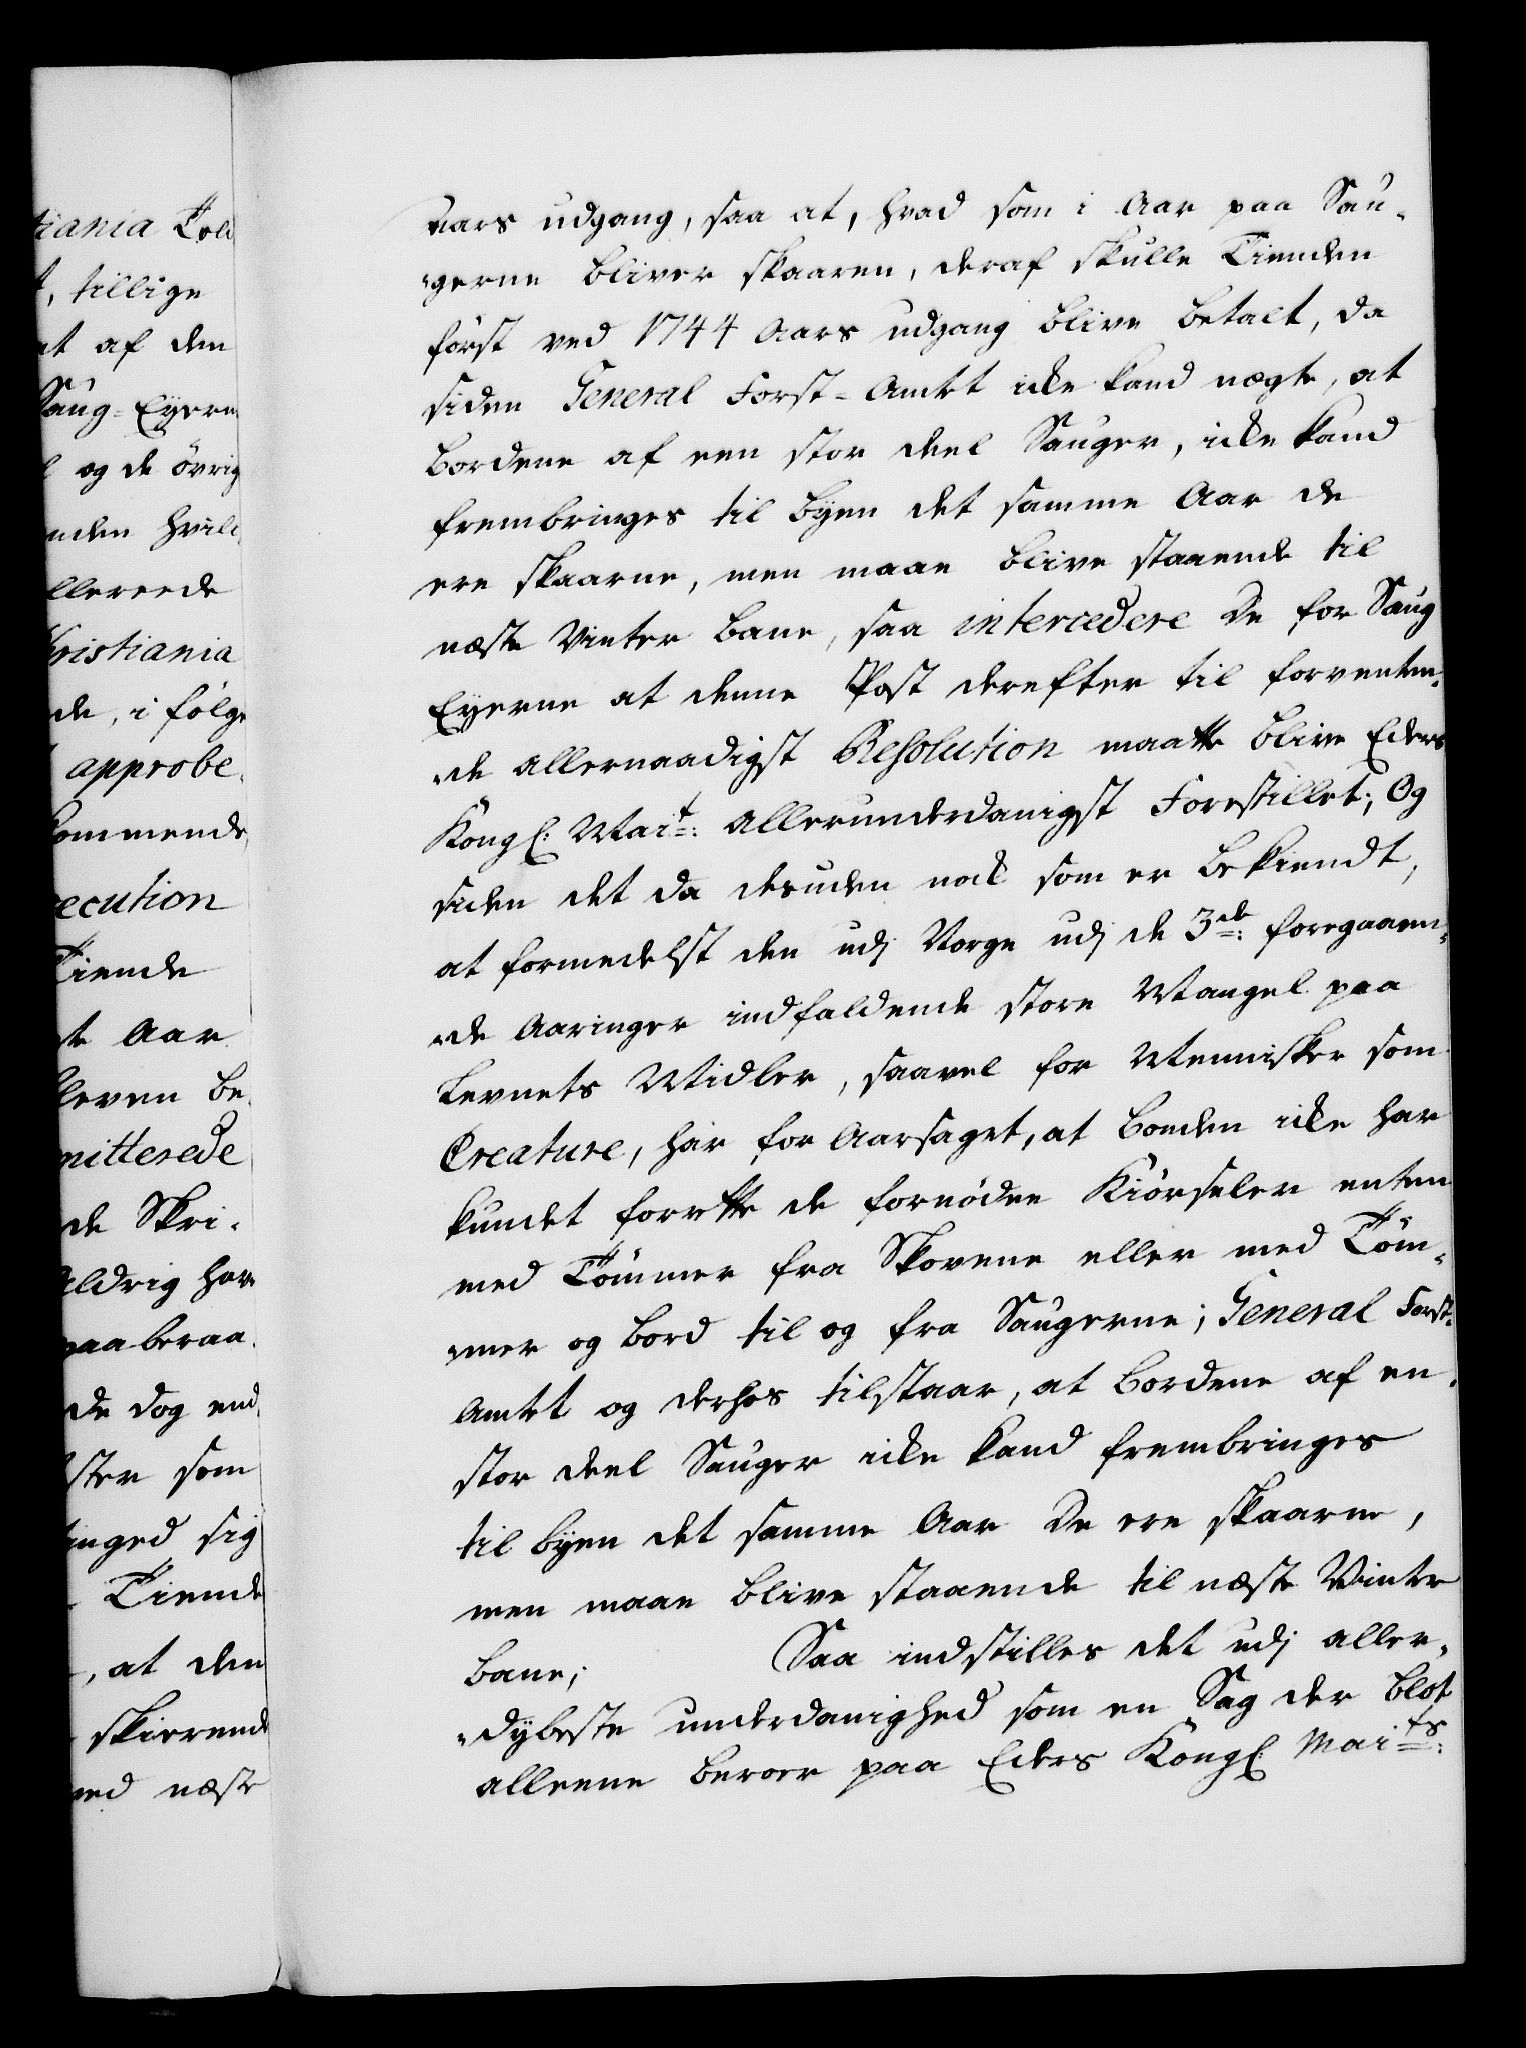 tiania Told
t, tillige
at af den
Saug-Eyern
l og de övrig
nden hvile
llereede
hristiania
de, i fölge
approbe,
kommende,
ecution
Tiende
te Aar
leven be,
mitterede
de Skri,
Aldrig har
paaberaa,
de dog end,
ster som
inged sig
Tiende
, at den
skierende
med næste
Aars udgang, saa at, hvad som i Aar paa Sau,
,gerne bliver skaaren, deraf skulle Tienden
först ved 1744 Aars udgang blive betalt, da
siden General Forst-Amtet icke kand nægte, at
bordene af een stor deel Sauger, icke kand
frembringes til byen det samme Aar de
ere skaarne, men maae blive staaende til
næste Vinter bane, saa intercedere de for Saug
Eyerne at denne Post derefter til forventen,
,de allernaadigst Resolution maatte blive Eders
Kongl: Mait: allerunderdanigst Forestillet; Og
siden det da desuden nok som er bekiendt,
at formedelst den udj Norge udj de 3de: foregaaen,
,de Aaringer indfaldende store Mangel paa
Levnets Midler, saavel for Mennisker som
Creature, har for Aarsaget, at bonden icke har
kundet forrette de fornödne Kiörseler enten
med Tömmer fra Skovene eller med Töm,
,mer og bord til og fra Saugerne; General Forst-
Amtet og derhos tilstaar, at bordene af en
stor deel Sauger icke kand frembringes
til byen det samme Aar de ere skaarne,
men maae blive staaende til næste Vinter
bane; Saa indstilles det udj aller,
,dybeste underdanighed som en Sag der blot
alleene beroer paa Eders Kongl: Maits: